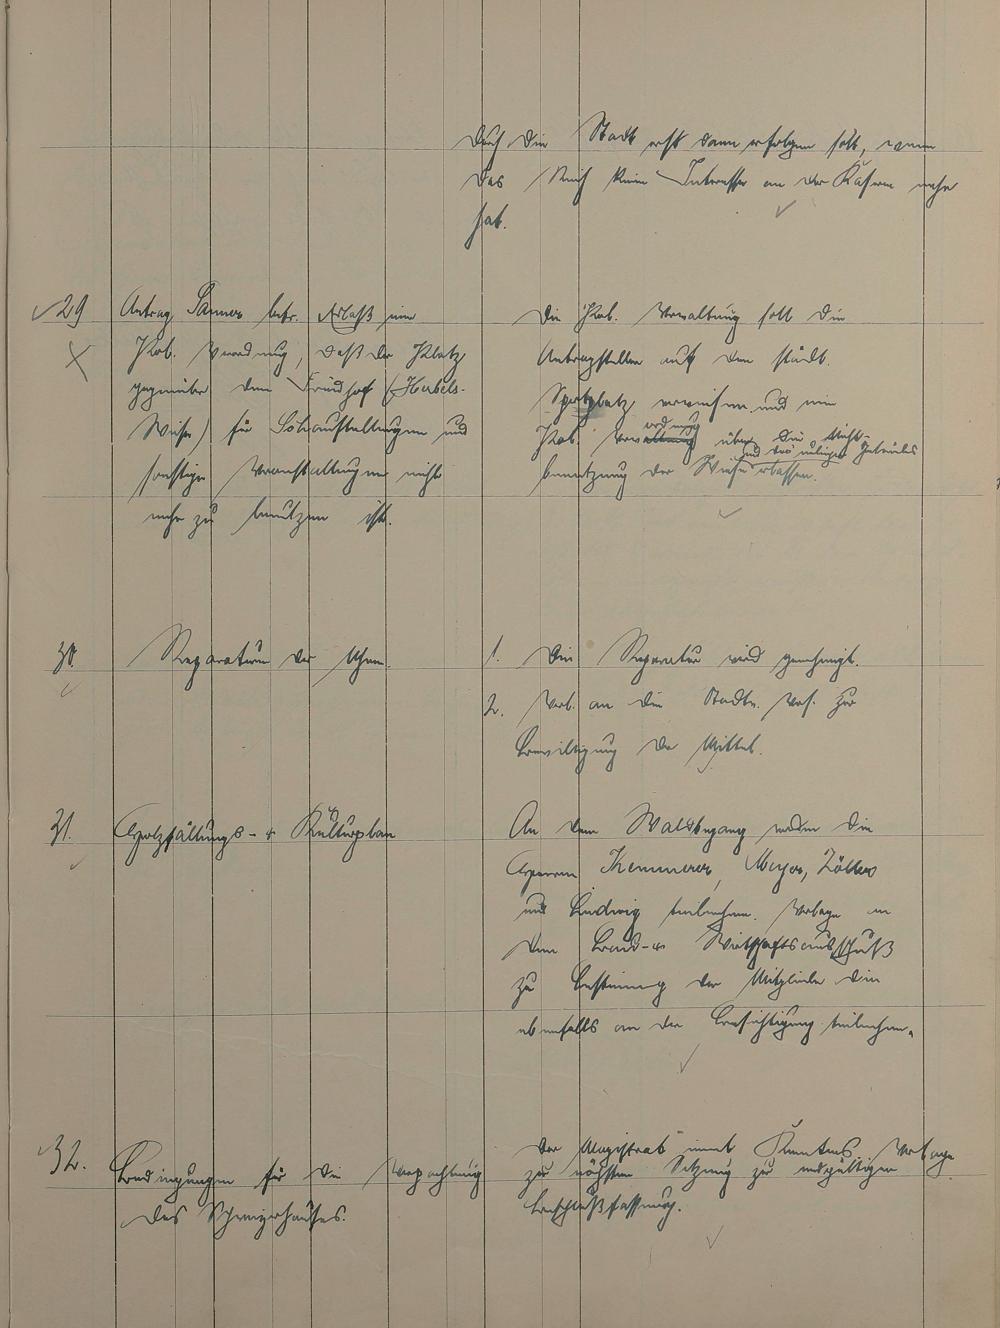 durch die Stadt erst dann erfolgen soll, wenn
das Reich kein Interesse an der Kaserne mehr
hat.
29 Antrag Sanner betr. Erlaß einer
Pol. Verordnung, daß der Platz
gegenüber dem Friedhof (Herbels-
Wiese) für Schaustellungen und
sonstige Veranstaltungen nicht
mehr zu benutzen ist.
Die Pol. Verwaltung soll die
Antragsteller auf den städt.
Sportplatz verweisen und eine
Pol. Verordnung über die Nicht-
und das übrige Geländes
benutzung der Wiese erlassen.
30 Reparaturen der Uhren.
1. Die Reparatur wird genehmigt.
2. Vorl. an die Stadtv. Vers. zur
Bewilligung der Mittel.
31. Holzfällungs- u Kulturplan
An dem Waldbegang werden die
Herren Kemmerer, Meyer, Zöller
und Ludwig teilnehmen. Vorlage an
den Land- u Wirtschaftsausschuß
zu Bestimmung der Mitglieder die
ebenfalls an der Besichtigung teilnehmen.
32. Bedingungen für die Verpachtung
des
Der Magistrat nimmt Kenntnis Vorlage
zu nächsten Sitzung zu endgültigen
Beschlußfassung.